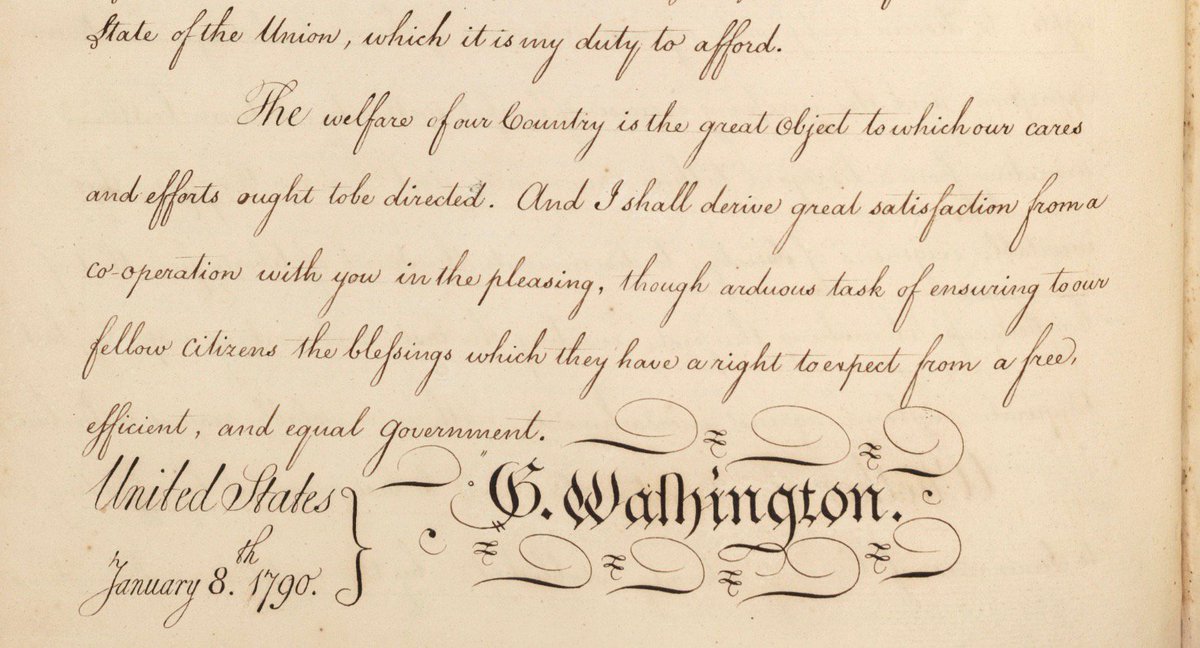 State of the Union, which it is my duty to afford.
The welfare of our Country is the great Object to which our cares
and efforts ought to be directed. And I shall derive great satisfaction from a
co-operation with you in the pleasing, though arduous task of ensuring to our
fellow citizens the bleſsings which they have a right to expect from a free,
efficient, and equal Government.
United States
January 8.th 1790.
G. Waſhington.